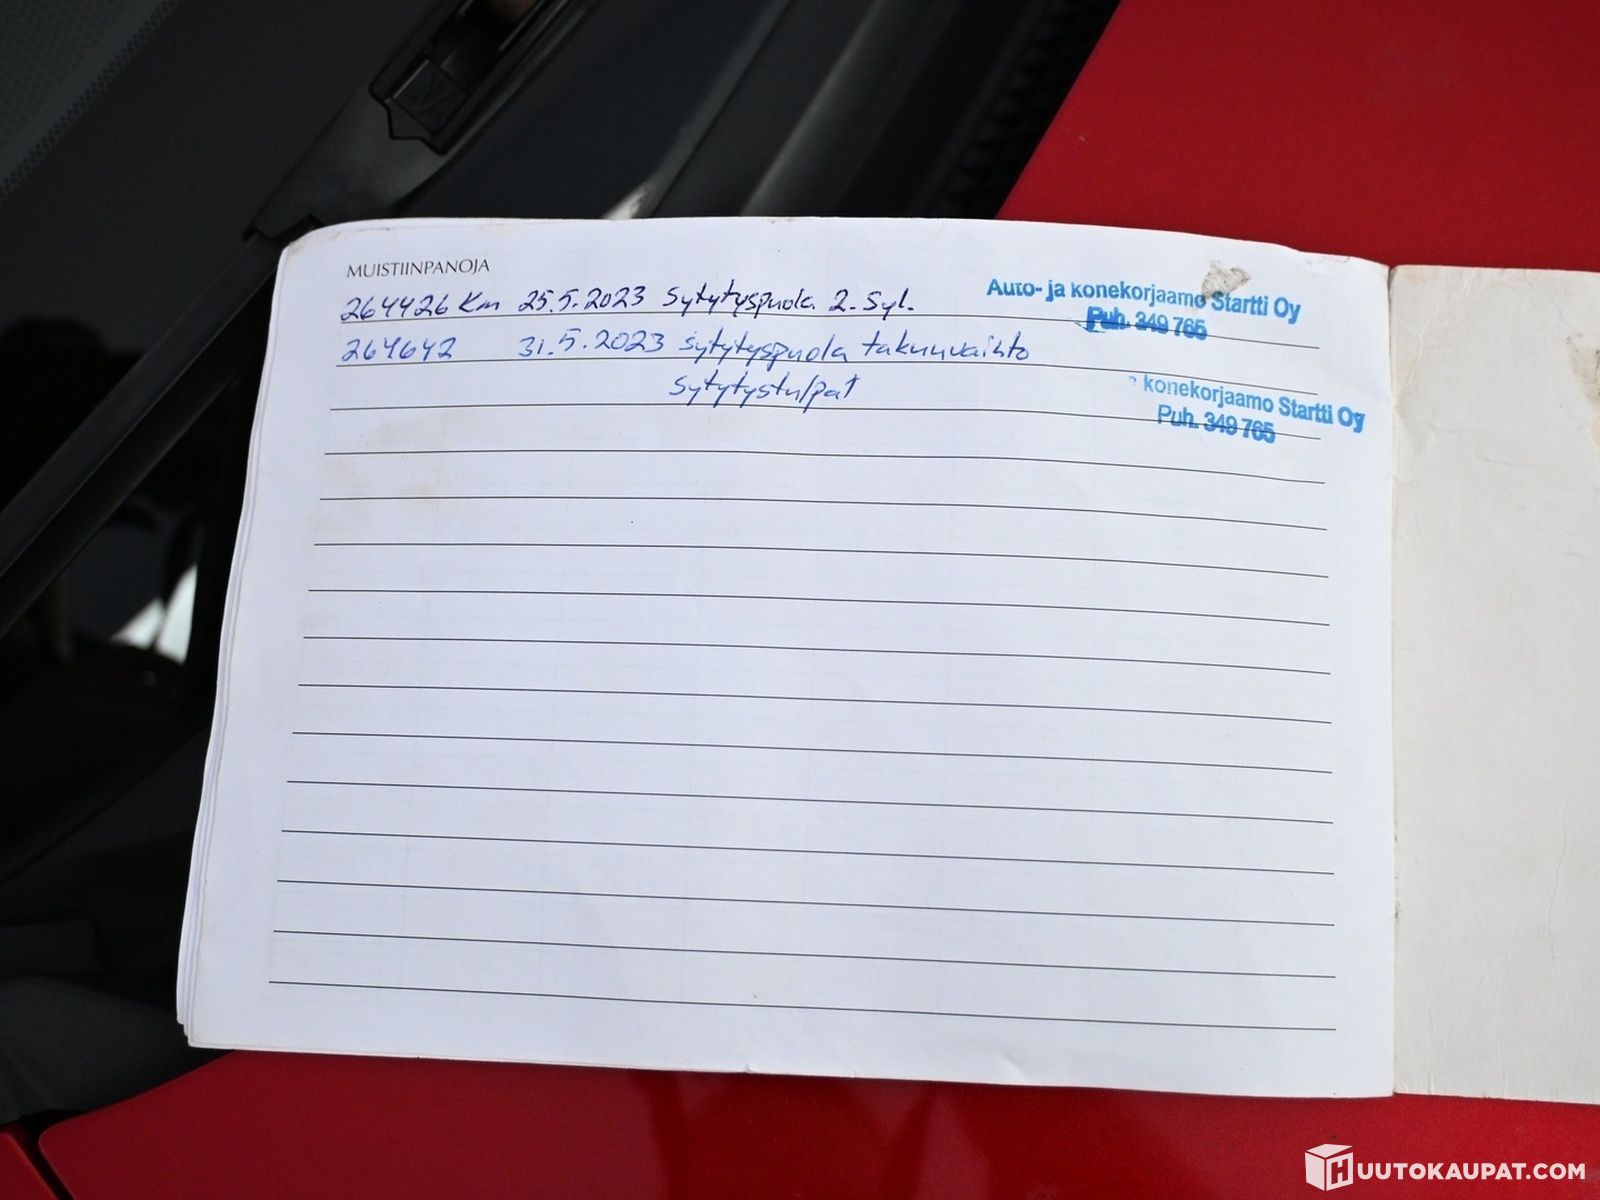 MUISTIINPANOJA
264426 Km 25.5.2023 Sytytyspuola 2. Syl.
Auto- ja konekorjaamo Startti Oy
Puh. 349 765
264642 31.5.2023 sytytyspuola takuuvaihto
sytytystulpat
konekorjaamo Startti Oy
Puh. 349 765
HUUTOKAUPAT.COM